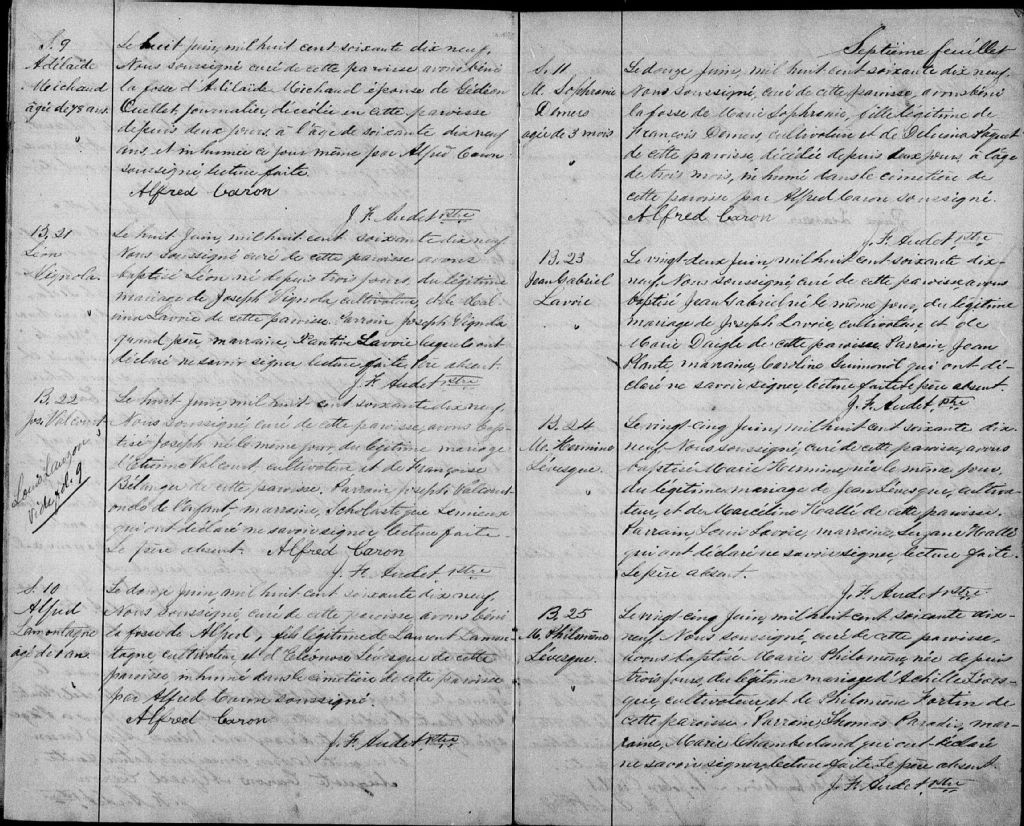 S. 9
Adélaïde
Michaud
agée de 78 ans.
"
Le huit Juin, mil huit cent soixante dix neuf,
Nous soussigné curé de cette paroisse avons béni
la fosse d'Adélaïde Michaud épouse de Gédéon
Ouellet, Journalier, décédée en cette paroisse
depuis deux jours, à l'âge de soixante dix neuf
ans, et inhumée ce jour même par Alfred Caron
soussigné lecture faite.
Alfred Caron
J. F. Audet, ptre
B. 21
Léon
Vignola.
"
Le huit Juin, mil huit cent soixante dix neuf
Nous soussigné curé de cette paroisse avons
baptisé Léon né depuis trois jours, du légitime
mariage de Joseph Vignola, cultivateur, et de
Lavoie de cette paroisse. Parrain Joseph Vignola
grand père, marraine, Lavoie lesquels ont
déclaré ne savoir signer, lecture faite, Père absent.
J. F. Audet ptre
B. 22
Jos. Valcourt
Le huit Juin, mil huit cent soixante dix neuf,
Nous soussigné, curé de cette paroisse, avons bap-
tisé Joseph né le même jour, du légitime mariage
d'Etienne Valcourt, cultivateur et de Françoise
Bélanger de cette paroisse. Parrain Joseph Valcourt
oncle de l'enfant, marraine, Scholastique Lemieux
qui ont déclaré ne savoir signer, lecture faite.
Le père absent. Alfred Caron
J. F. Audet, ptre
Vide fol. 9
S. 10
Alfred
Lamontagne
agé de 1 an.
Le douze Juin, mil huit cent soixante dix neuf,
Nous soussigné, curé de cette paroisse, avons béni
la fosse de Alfred, fils légitime de Laurent Lamon-
tagne cultivateur, et d'Eléonore Lévesque de cette
paroisse, inhumé dans le cimetière de cette paroisse
par Alfred Caron soussigné.
Alfred Caron
J. F. Audet, ptre
Septième feuillet
S. 11
M. Sophronie
Demers
agée de 3 mois
"
Le douze Juin, mil huit cent soixante dix neuf.
Nous soussigné, curé de cette paroisse, avons béni
la fosse de Marie Sophronie, fille légitime de
François Demers, cultivateur et de Delvina Paquet
de cette paroisse, décédée depuis deux jours, à l'âge
de trois mois, inhumé dans le cimetière de
cette paroisse par Alfred Caron soussigné.
Alfred Caron
J. F. Audet, ptre
B. 23
Jean Gabriel
Lavoie
"
Le vingt-deux Juin, mil huit cent soixante dix-
neuf, Nous soussigné, curé de cette paroisse avons
baptisé Jean Gabriel né le même jour, du légitime
mariage de Joseph Lavoie, cultivateur et de
Marie Daigle de cette paroisse, Parrain, Jean
Plante, marraine, Caroline Guimond qui ont dé-
claré ne savoir signer, lecture faite le père absent.
J. F. Audet, ptre
B. 24
M. Hermine
Lévesque.
"
Le vingt cinq Juin, mil huit cent soixante dix-
neuf Nous soussigné, curé de cette paroisse, avons
baptisée Marie Hermine, née le même jour,
du légitime mariage de Jean Lévesque, cultiva-
teur, et de Marceline Hallé de cette paroisse.
Parrain Louis Lavoie, marraine, Suzane Hallé
qui ont déclaré ne savoir signer, lecture faite.
Le père absent.
J. F. Audet ptre
B. 25
M. Philomène
Lévesque.
"
Le vingt cinq Juin, mil huit cent soixante dix-
neuf, Nous soussigné, curé de cette paroisse,
avons baptisé Marie Philomène, née depuis
trois jours, du légitime mariage d'Achille Lévès-
que, cultivateur, et de Philomène Fortin de
cette paroisse. Parrain, Thomas Paradis, mar-
raine, Marie Chamberland qui ont déclaré
ne savoir signer, lecture faite le père absent.
J. F. Audet, ptre